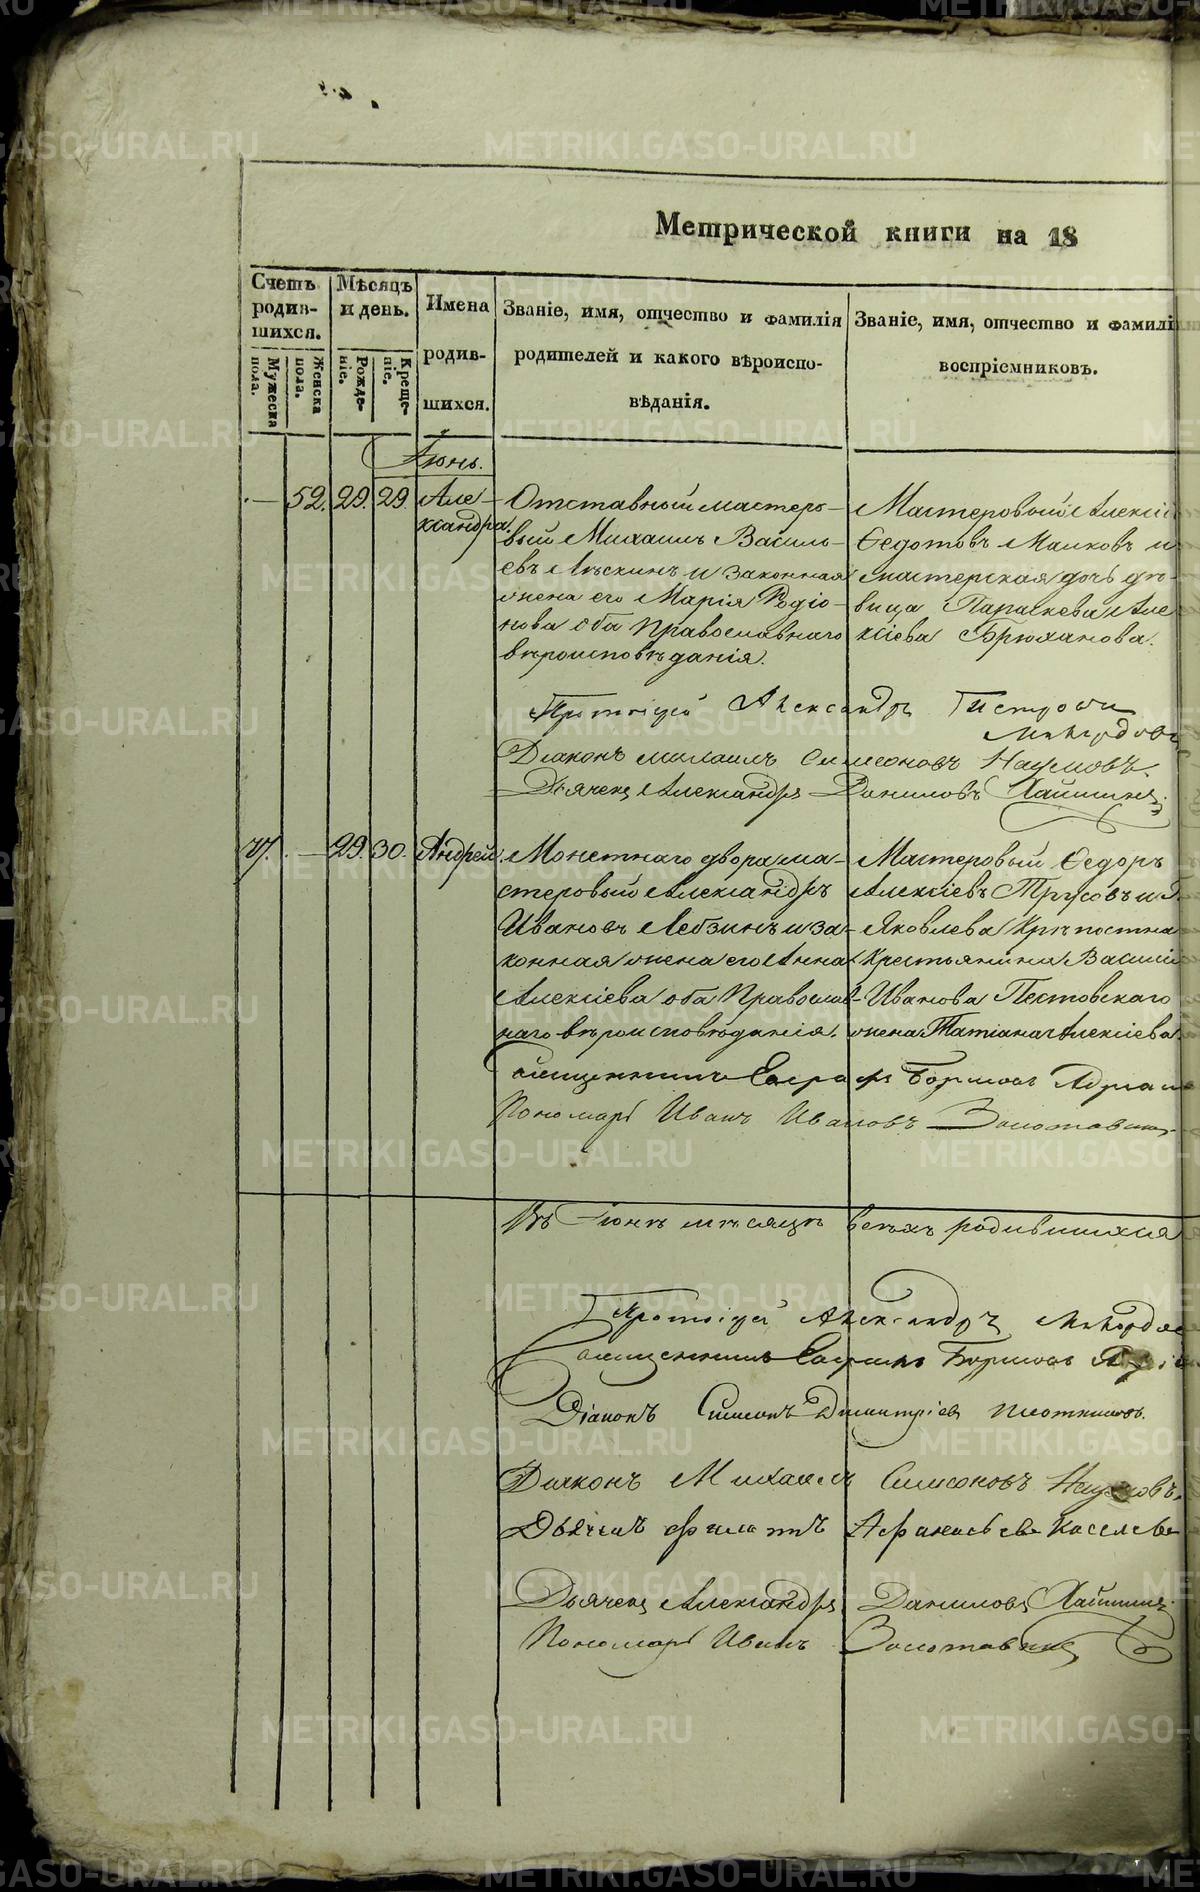 Метрической книги на 18
Счетъ родив-шихся.
Мужеска пола.
Женска пола.
Мѣсяцъ и день.
Рожде-ніе.
Креще-ніе.
Имена родив-шихся.
Званіе, имя, отчество и фамилія
родителей и какого вѣроиспо-
вѣданія.
Званіе, имя, отчество и фамилі
воспріемниковъ.
Іюнь.
— 52. 29. 29.
Але-
ксандра.
Отставный мастеро-
вый Михаилъ Василь-
евъ Лѣскинъ и законная
жена его Марія Родіо-
нова оба Православнаго
вѣроисповѣданія.
Мастеровый Алексій
Ѳедотовъ Малковъ и
мастерская дочь дѣ-
вица Параскева Але
ксіева Брюханова.
Протоіерей Александръ
Діаконъ Михаилъ Симеоновъ Наумовъ.
Дьячекъ Александръ Даниловъ
— 29. 30.
Андрей.
Монетнаго двора ма-
стеровый Александръ
Ивановъ Лебзинъ и за-
конная жена его Анна
Алексіева оба Православ-
наго вѣроисповѣданія.
Мастеровый Ѳедоръ
Алексіевъ Трусовъ и
Яковлева Крѣпостна
Крестьянина Василі
Иванова Пестовскаго
жена Татіана Алексіева.
Священникъ
Пономарь Иванъ Ивановъ Золотавинъ
Въ Іюнѣ мѣсяцѣ всѣхъ родившихся
Протоіерей Александръ
Священникъ
Діаконъ Симеонъ Димитріевъ Плотниковъ.
Діаконъ Михаилъ Симеоновъ Наумовъ.
Дьячекъ Филатъ Афанасьевъ
Дьячекъ Александръ Даниловъ
Пономарь Иванъ Золотавинъ
METRIKI.GASO-URAL.RU